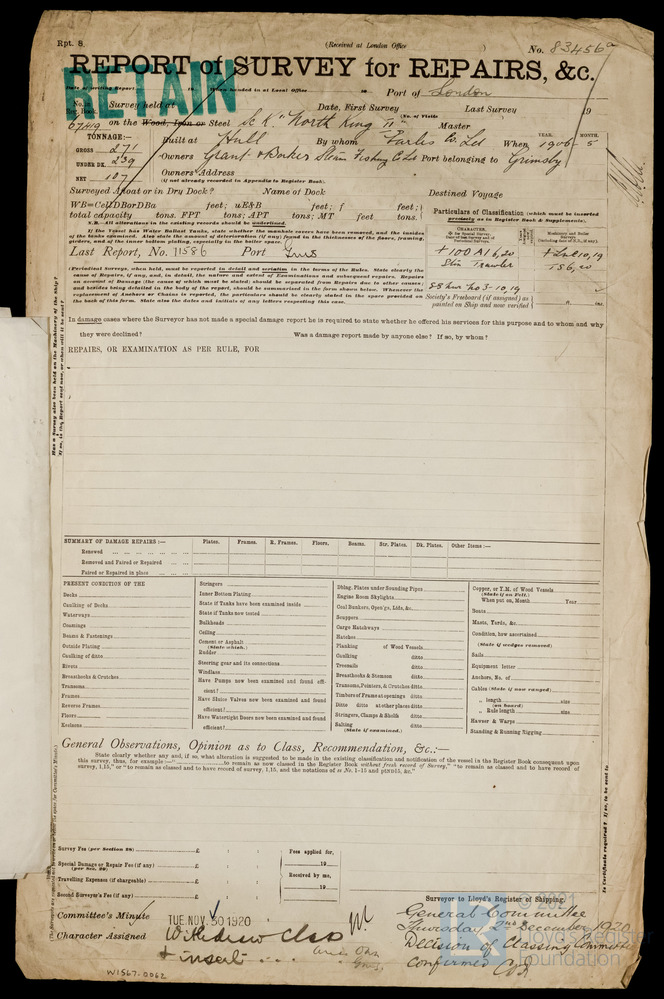 Rpt. 8.
(Received at London Office )
No. 83456a
REPORT of SURVEY for REPAIRS, &c.
RETAIN
Date of writing Report 19 When handed in at Local Office 19 Port of London
No. in Reg. Book. Survey held at Date, First Survey Last Survey 19
(No. of Visits )
67419 on the Wood, Iron or Steel Sc K "North King II" Master
TONNAGE:—
GROSS 271
UNDER DK. 239
NET 107
Built at Hull By whom Earles Co. Ld When 1906 - 5
YEAR. MONTH.
Owners Grant & Baker Steam Fishing Co Ld Port belonging to Grimsby
Owners' Address
(if not already recorded in Appendix to Register Book).
Surveyed Afloat or in Dry Dock? Name of Dock Destined Voyage
WB=CellDBorDBa feet; uE&B feet; f feet;
total capacity tons. FPT tons; APT tons; MT feet tons.
N.B.—All alterations in the existing records should be underlined.
If the Vessel has Water Ballast Tanks, state whether the manhole covers have been removed, and the insides
of the tanks examined. Also state the amount of deterioration (if any) found in the thicknesses of the floors, framing,
girders, and of the inner bottom plating, especially in the boiler space.
Particulars of Classification (which must be inserted
precisely as in Register Book & Supplements).
Last Report, No. 11586 Port Gms
+ 100 A1 6,20
Stm Trawler
+ LMC 10,19
TS 6,20
Periodical Surveys, when held, must be reported in detail and seriatim in the terms of the Rules. State clearly the
cause of Repairs, if any, and, in detail, the nature and extent of Examinations and subsequent repairs. Repairs
on account of Damage (the cause of which must be stated) should be separated from Repairs due to other causes;
and besides being detailed in the body of the report, should be summarised in the form shown below. Whenever the
replacement of Anchors or Chains is reported, the particulars should be clearly stated in the space provided on
the back of this form. State also the dates and initials of any letters respecting this case.
Society's Freeboard (if assigned) as
painted on Ship and now verified
In damage cases where the Surveyor has not made a special damage report he is required to state whether he offered his services for this purpose and to whom and why
they were declined? Was a damage report made by anyone else? If so, by whom?
REPAIRS, OR EXAMINATION AS PER RULE, FOR
SUMMARY OF DAMAGE REPAIRS:— Plates. Frames. R. Frames. Floors. Beams. Str. Plates. Dk. Plates. Other Items:—
Renewed
Removed and Faired or Repaired
Faired or Repaired in place
PRESENT CONDITION OF THE
Decks
Caulking of Decks
Waterways
Coamings
Beams & Fastenings
Outside Plating
Caulking of ditto
Rivets
Breasthooks & Crutches
Transoms
Frames
Reverse Frames
Floors
Keelsons
Stringers
Inner Bottom Plating
State if Tanks have been examined inside
State if Tanks now tested
Bulkheads
Ceiling
Cement or Asphalt
(State which.)
Rudder
Steering gear and its connections
Windlass
Have Pumps now been examined and found efficient?
Have Sluice Valves now been examined and found efficient?
Have Watertight Doors now been examined and found efficient?
Dblng. Plates under Sounding Pipes
Engine Room Skylights
Coal Bunkers, Open'gs, Lids, &c.
Scuppers
Cargo Hatchways
Hatches
Planking of Wood Vessels
Caulking ditto
Treenails ditto
Breasthooks & Stemson ditto
Transoms, Pointers, & Crutches ditto
Timbers of Frame at openings ditto
Ditto ditto at other places ditto
Stringers, Clamps & Shelfs ditto
Salting ditto
(State if examined.)
Copper, or Y.M. of Wood Vessels
(State if on Felt.)
When put on, Month Year
Boats
Masts, Yards, &c.
Condition, how ascertained
(State if wedges removed)
Sails
Equipment letter
Anchors, No. of
Cables (State if now ranged)
" length size
(on board)
" Rule length size
Hawser & Warps
Standing & Running Rigging
General Observations, Opinion as to Class, Recommendation, &c.:—
State clearly whether any and, if so, what alteration is suggested to be made in the existing classification and notification of the vessel in the Register Book consequent upon
this survey, thus, for example:—" to remain as now classed in the Register Book without fresh record of Survey," "to remain as classed and to have record of
survey, 1,15," or "to remain as classed and to have record of survey, 1,15, and the notations of ss No. 1-15 and ptND15, &c."
Survey Fee (per Section 29) £ : :
Special Damage or Repair Fee (if any)
(per Sec. 29) £ : :
Travelling Expenses (if chargeable) £ : :
Second Surveyor's Fee (if any) £ : :
Fees applied for,
19
Received by me,
19
Surveyor to Lloyd's Register of Shipping.
Committee's Minute TUE. NOV. 30 1920
Character Assigned Withdraw Class
+ insert
General Committee
Thursday 2nd December 1920
Decision of Classing Committee
confirmed
W1567-0062
© 2021
Lloyd's Register
Foundation